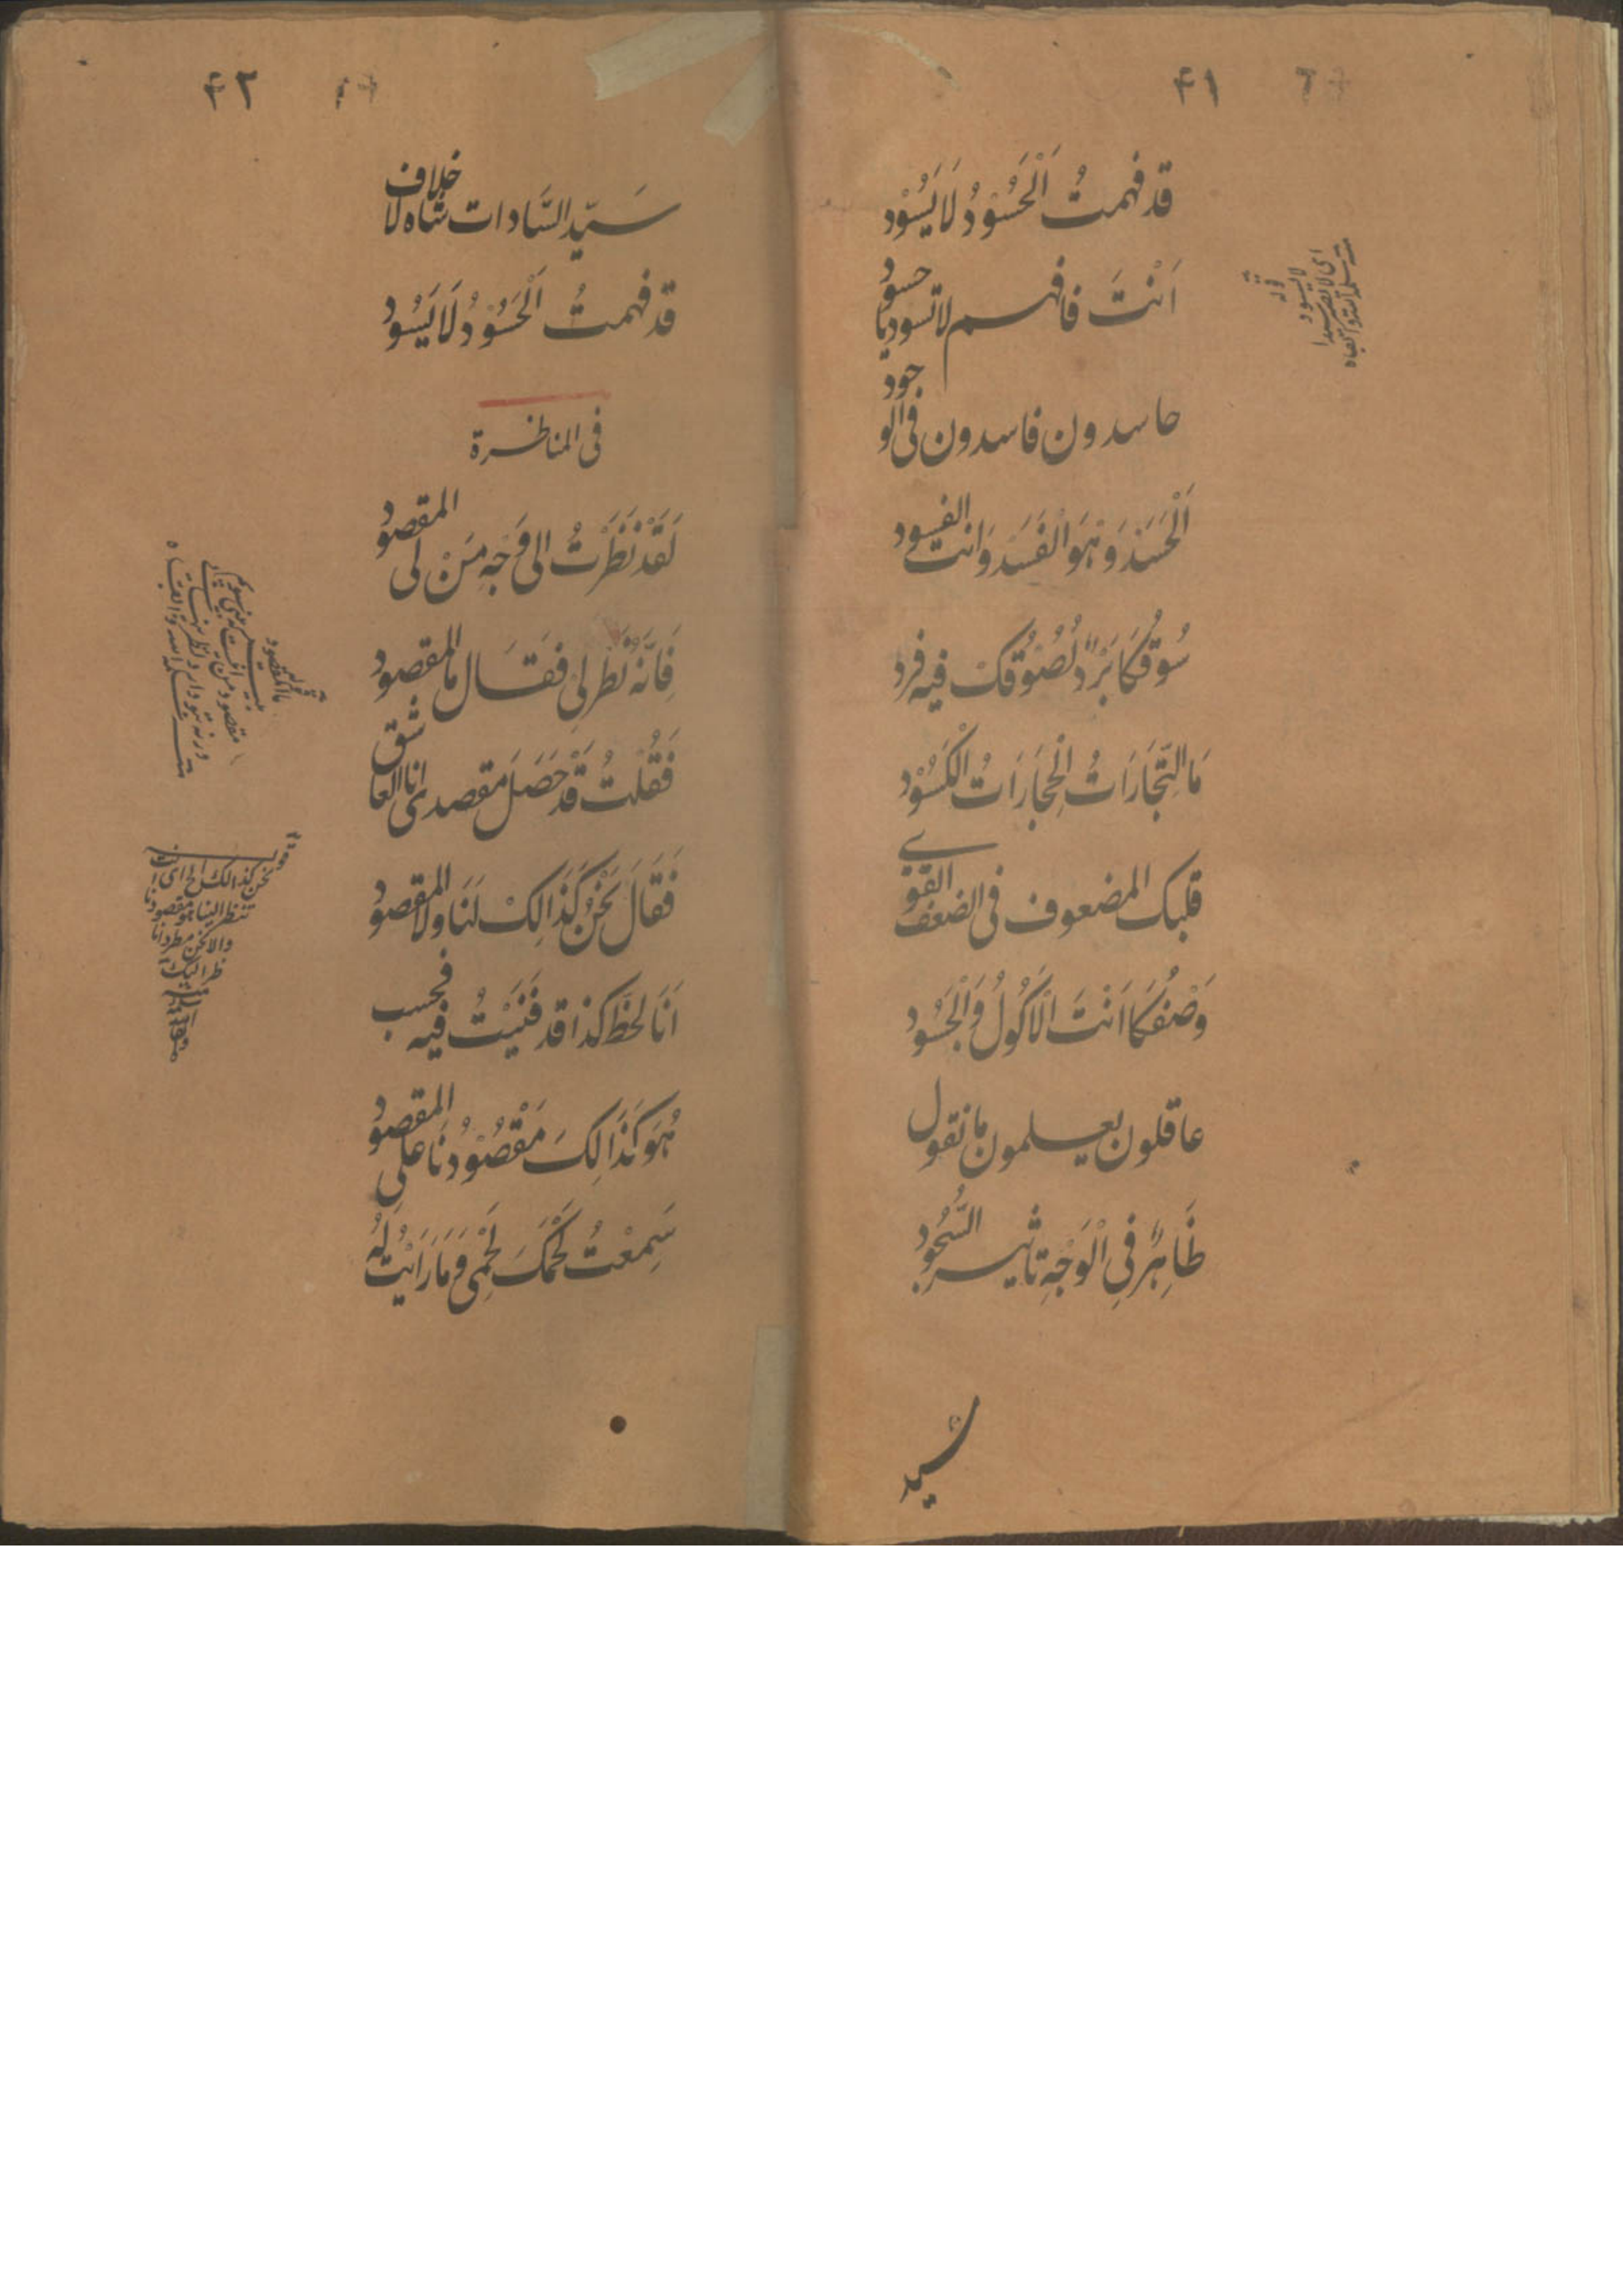 ۴۱
قد فهمتُ اَلْحَسُوْدُ لَا یَسُوْد
اَنْتَ فافهم لا تسود یا حسود
حاسدون فاسدون فی الوجود
اَلْحَسَدْ وَهْوَ الْفَسَدْ وَانت الفسود
سُوْقُكَا بَرْدٌ لُصُوْقُكْ فیه فرد
مَا التِّجَارَاتُ الْحِجَارَاتُ الْكَسُوْد
قلبك المضعوف فی الضعف القوی
وَصْفُكَا اَنْتَ الْاَكُوْلُ وَالْجَسُوْد
عاقلون یعلمون ما نقول
ظَاهِرٌ فِی الْوَجْهِ تاثیر السُّجُود
سید
قوله
لا یسود
۴۲
سَیّد السَّادات شاه لا خلاف
قد فهمتُ اَلْحَسُوْدُ لَا یَسُود
فی المناظرة
لَقَدْ نَظَرْتُ الی وَجْهِ مَنْ لی المقصود
فَاِنَّهٗ نَظَر لِیْ فَقَال ما المقصود
فَقُلْتُ قَدْ حَصَلَ مقصدی انا العاشق
فَقَالَ نَحْنُ كَذَالِكْ لَنَا ولا المقصود
اَنَا لَحْظَ كذا قد فَنَیْتُ فیه فحسب
هُوَ كَذَالِكَ مَقْصُوْدُنَا علی المقصود
سَمِعْتُ لَحْمُكَ لَحْمِی وَمَا رَاَیْتُ لَهُ
قوله
ما المقصود
نحن كذالك الخ ای ان
تنظر الینا هو مقصودنا